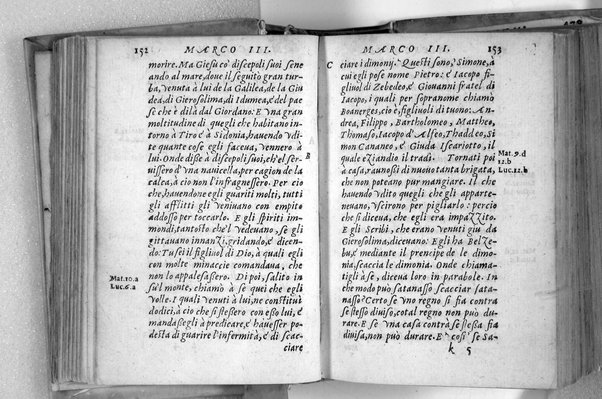 152 MARCO III.
morire. Ma Giesu co' discepoli suoi sene
andò al mare, dove il seguitò gran tur
ba, venuta à lui de la Galilea, de la Giu
dea, di Gierosolima, di Idumea, & del pae
se che è di là dal Giordano. E una gran
moltitudine di quegli che habitano in-
torno à Tiro & à Sidonia, havendo udi
te quante cose egli faceva, vennero à
lui. Onde disse à discepoli suoi, ch'el ser-
B
vissero d'una navicella, per cagion de la
calca, à cio non l'infragnessero. Per cio
che, havendone egli guariti molti, tutti
gli afflitti gli venivano con empito
addosso per toccarlo. E gli spiriti im-
mondi, tantosto che'l vedevano, se gli
gittavano innanzi, gridando, & dicen-
do: Tu sei il figliuol di Dio, à quali egli
con molte minaccie comandava, che
non lo appalesassero. Di poi, salito in
Mat.10.a
Luc.6.a
su'l monte, chiamò à se quei che egli
volle. I quali venuti à lui, ne constituì
dodici, à cio che si stessero con esso lui, &
mandassegli à predicare, & havesser po-
desta di guarire l'infermità, & di scac-
ciare
MARCO III. 153
C
ciare i dimonÿ. Questi sono, Simone, à
cui egli pose nome Pietro: & Iacopo fi-
gliuol di Zebedeo, & Giovanni fratel di
Iacopo, i quali per sopranome chiamò
Boanerges, cio è, figliuoli di tuono: An-
drea, Filippo, Bartholomeo, Mattheo,
Thomaso, Iacopo d'Alfeo, Thaddeo, Si
mon Cananeo, & Giuda Iscariotto, il
quale eziandio il tradì. Tornati poi
Mat.9.d
12.b
Luc.11.b
à casa, raunossi di nuovo tanta brigata,
che non poteano pur mangiare. Il che
havendo udito quegli che gli apparte-
nevano, uscirono per pigliarlo: percio
che si diceva, che egli era impazzito.
E gli Scribi, che erano venuti giu da
Gierosolima, dicevano: Egli ha Belze-
bu, & mediante il prencipe de le dimo-
nia, scaccia le dimonia. Onde chiama-
tigli à se, diceva loro in parabole. In
che modo può satanasso scacciar satan-
nasso? Certo se uno regno si fia contra
se stesso diviso, cotal regno non può du-
rare. E se una casa contra se stessa fia
divisa, non può durare. E cosi se Sa-
k 5